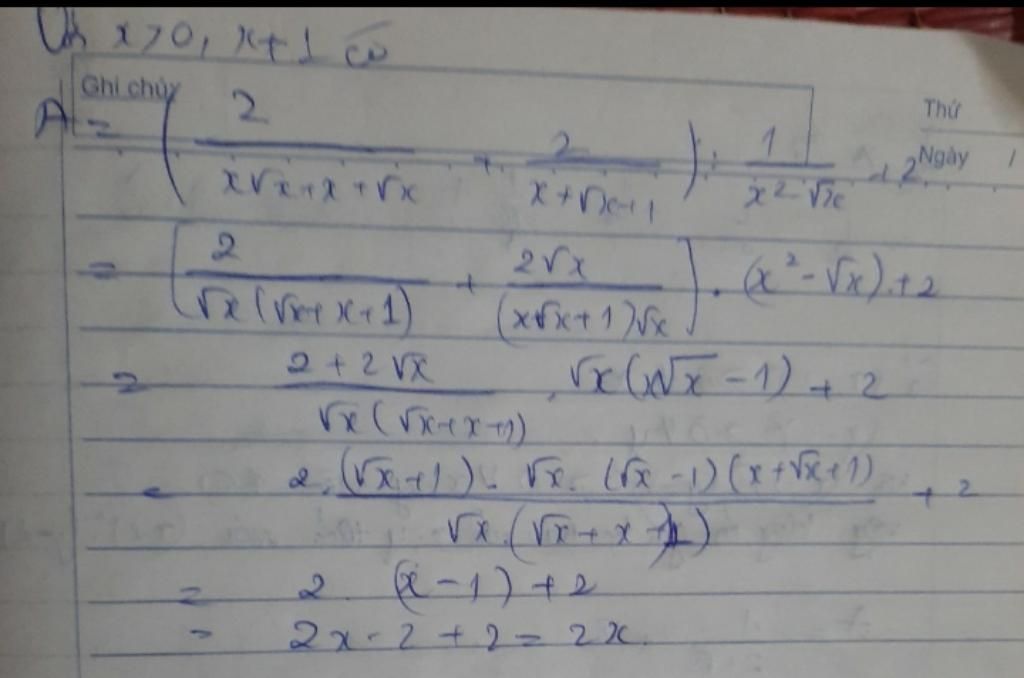 Với x > 0, x ≠ 1 có
Ghi chú:
Thứ
Ngày /
A = ( 2/(x√x + x + √x) + 2/(x + √x + 1) ) : 1/(x² - √x) + 2
= [ 2/(√x(√x + x + 1)) + 2√x/((x√x + 1)√x) ] . (x² - √x) + 2
= (2 + 2√x)/(√x(√x + x + 1)) . √x(x√x - 1) + 2
= 2.(√x + 1) . √x . (√x - 1)(x + √x + 1)/(√x.(√x + x + 1)) + 2
= 2 . (x - 1) + 2
= 2x - 2 + 2 = 2x.